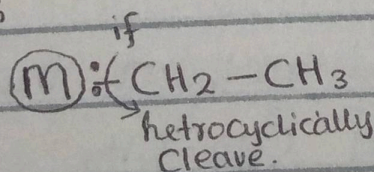 if
M : CH2 – CH3
hetrocyclically
cleave.